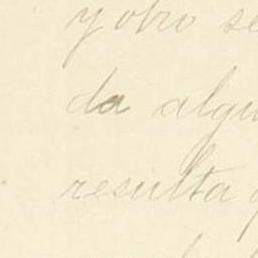 y otro se
da algu
resulta q